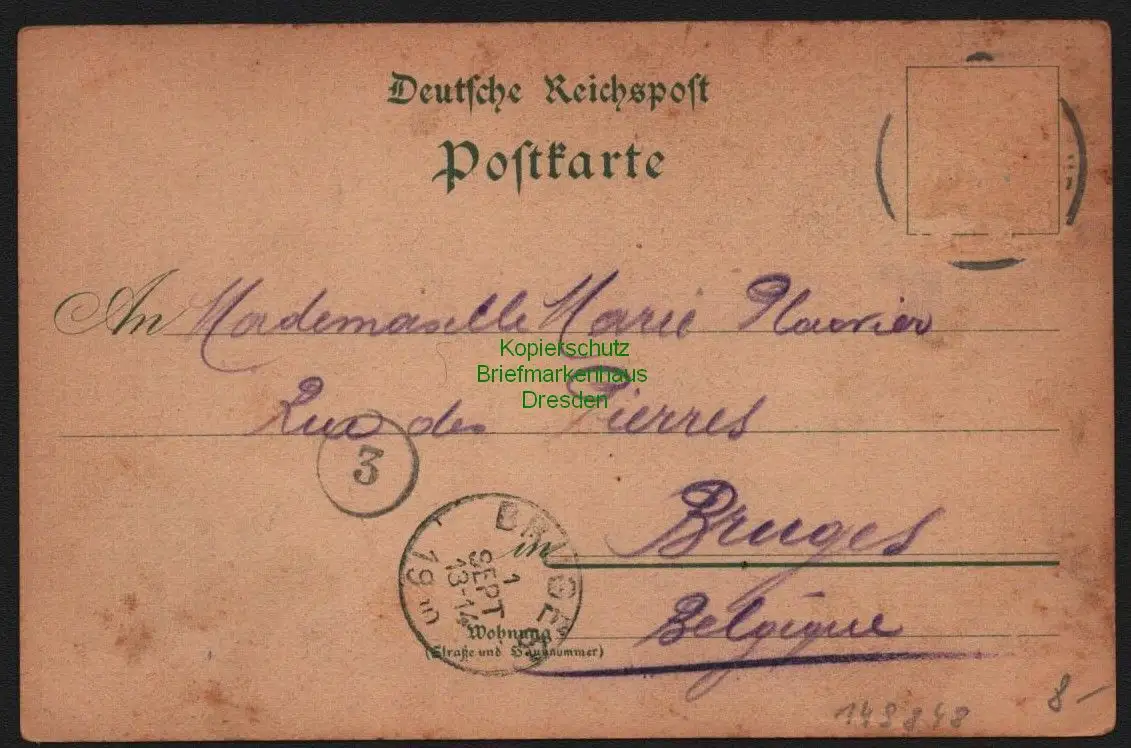 Deutsche Reichspost
Postkarte
An Mademoiselle Marie
Kopierschutz
Briefmarkenhaus
Dresden
Rue des Pierres
3
in Bruges
BRUGES
1
SEPT
13-14
19
Belgique
Wohnung
(Straße und Hausnummer)
149848
8-